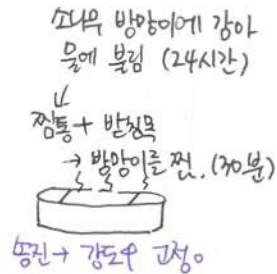 소나무 방망이에 감아
물에 불림 (24시간)
↓
찜통 + 받침목
→ 방망이를 찜. (30분)
송진 → 강도↑ 고정。